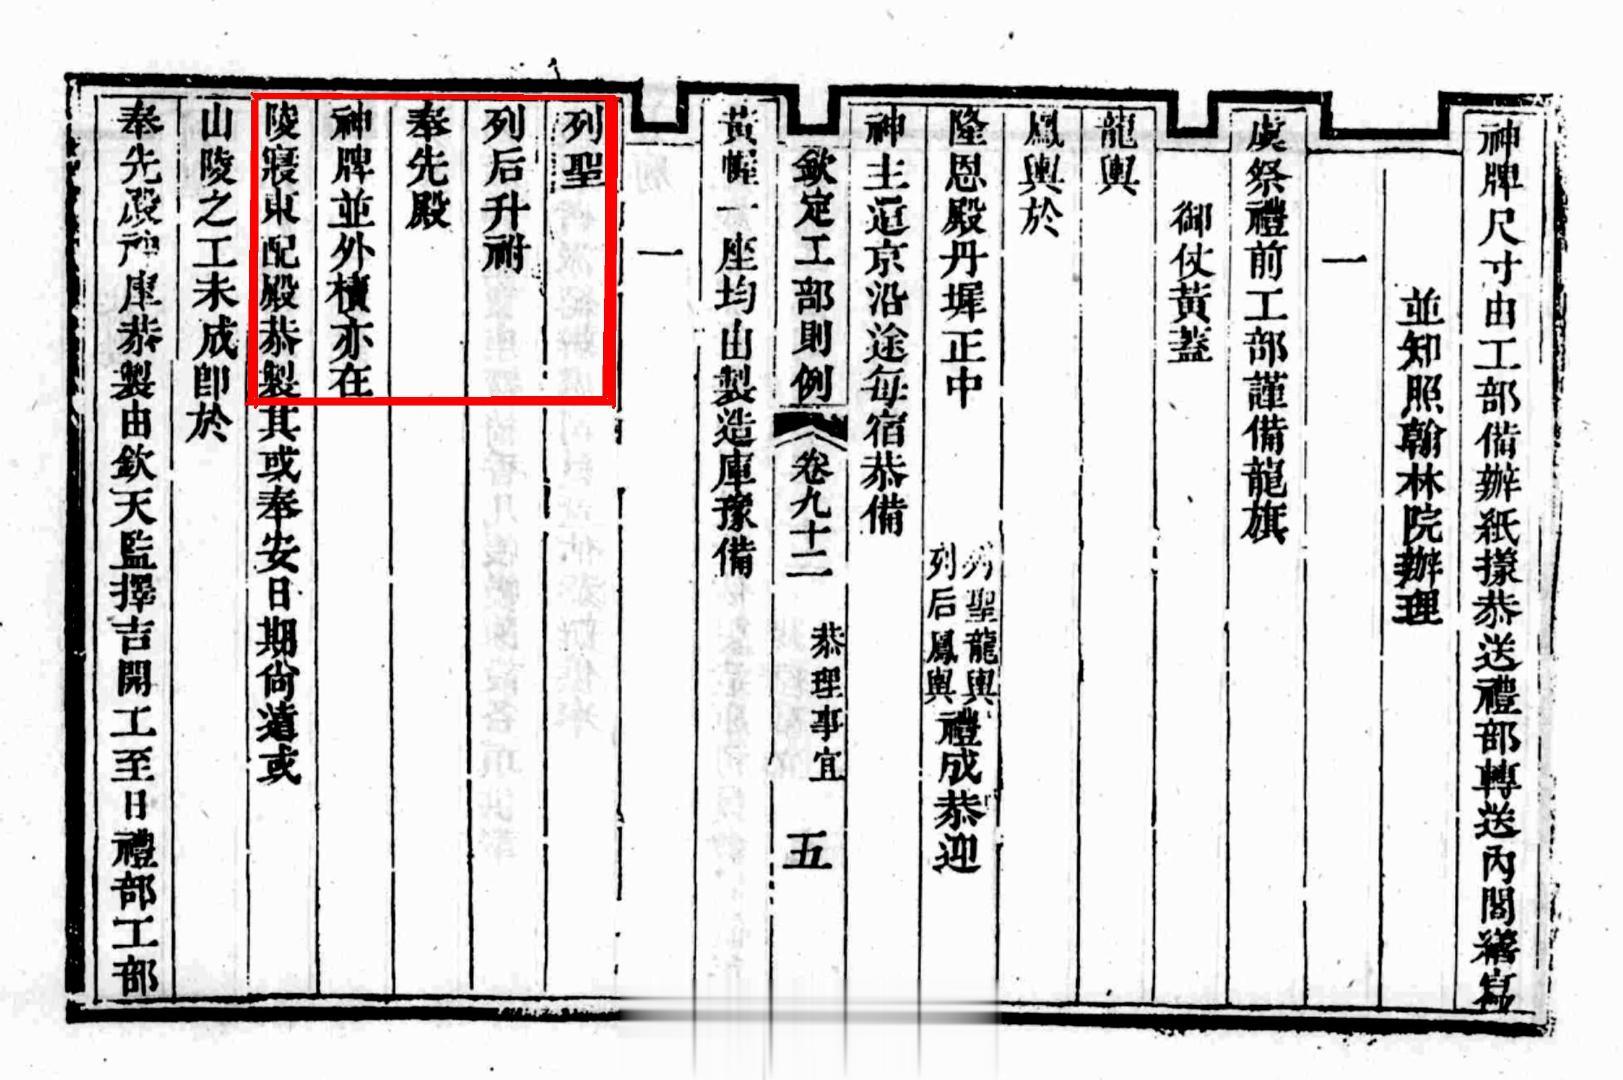 神牌尺寸由工部備辦紙㨾恭送禮部轉送內閣繕寫
並知照翰林院辦理
一
虞祭禮前工部謹備龍旗
御仗黃蓋
龍輿
鳳輿於
隆恩殿丹墀正中
列聖龍輿
列后鳳輿
禮成恭迎
神主還京沿途每宿恭備
欽定工部則例
卷九十二
恭理事宜
五
黃幄一座均由製造庫豫備
一
列聖
列后升祔
奉先殿
神牌並外櫝亦在
陵寢東配殿恭製其或奉安日期尚遠或
山陵之工未成卽於
奉先殿神庫恭製由欽天監擇吉開工至日禮部工部